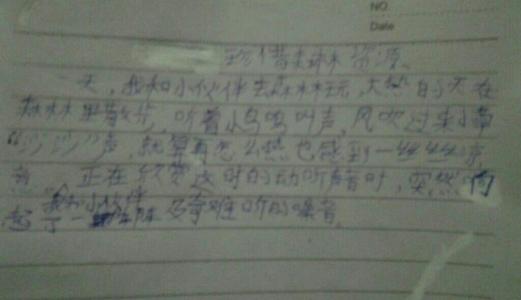 NO.
Date
珍惜森林资源
一天，我和小伙伴去森林玩，大热的天在
森林里散步，听着小鸟鸣叫声，风吹过来带
“沙沙”声，就算有怎么热也感到一丝丝凉
意 正在欣赏这时的动听声音时，突然响
我和小伙伴
起了一 难听的噪音